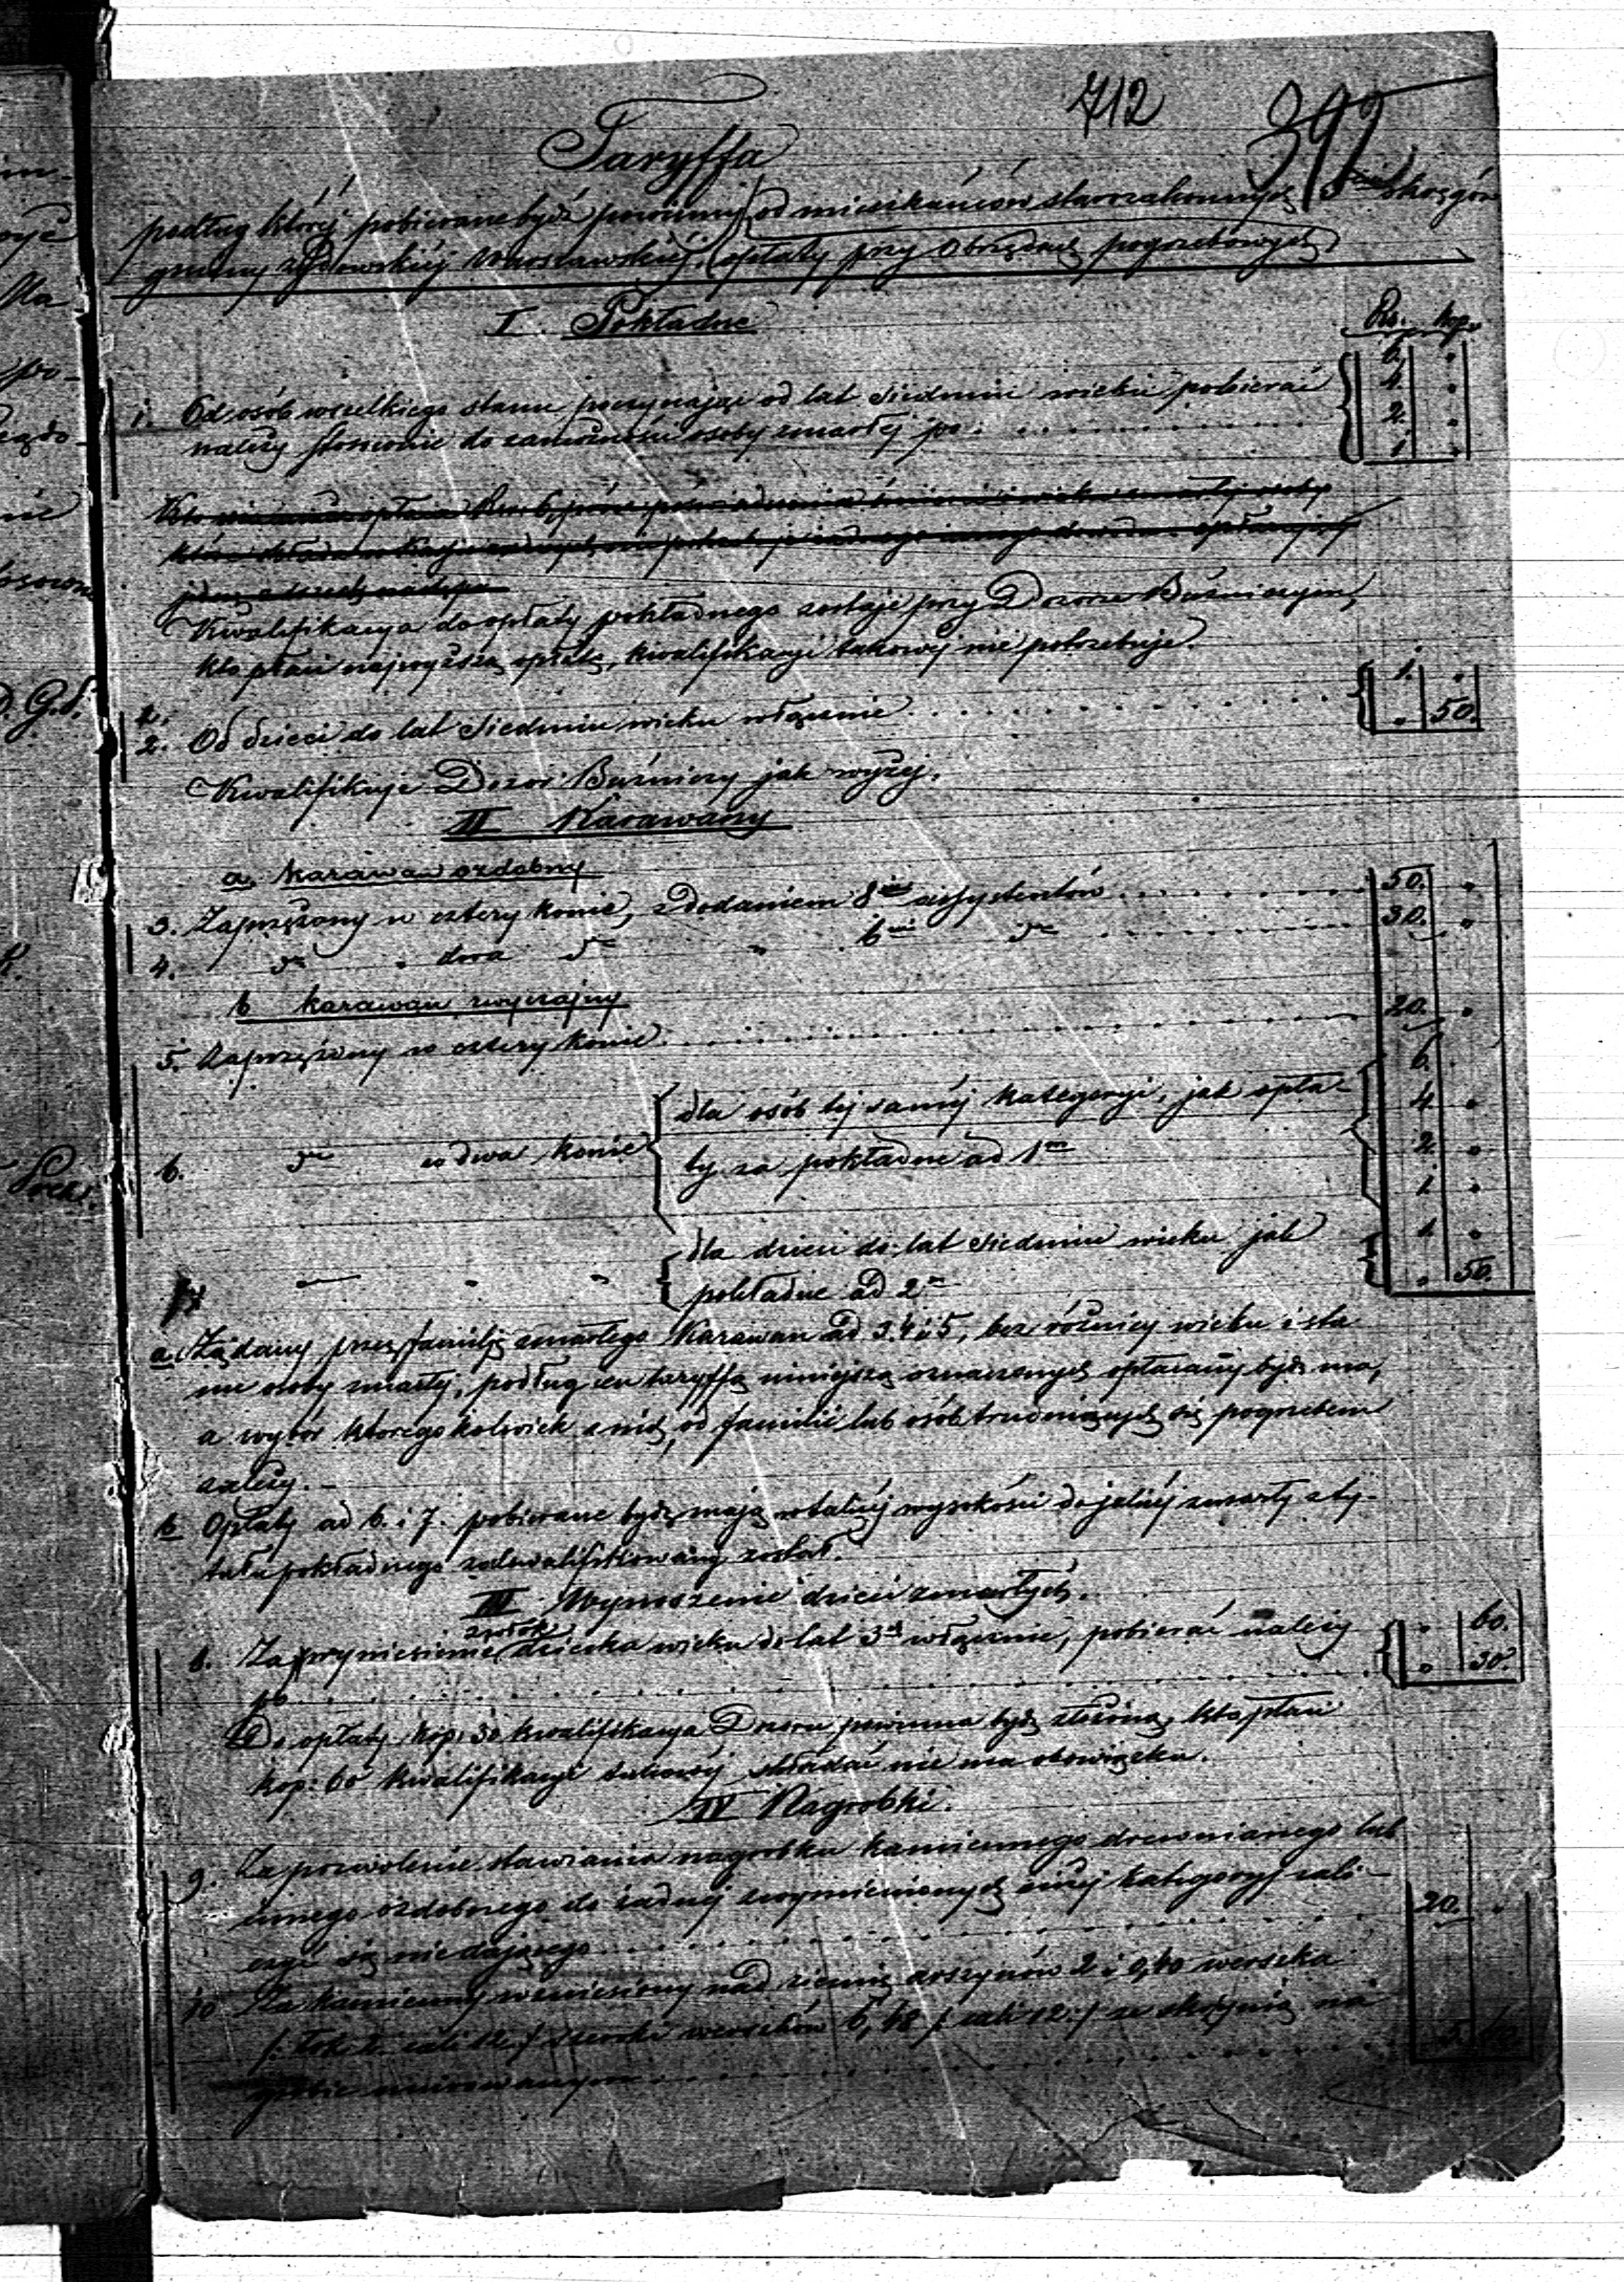 712
392
Taryffa
podług której pobierane bydź powinny od mieszkańców starozakonnych okręgów
gminy żydowskiéj warszawskiéj, opłaty przy obrzędach pogrzebowych
I. Pokładne
Rs. kop.
6. "
1. Od osób wszelkiego stanu poczynając od lat siedmiu wieku pobierać 4. "
należy stosownie do zamożności osoby zmarłej po . . . 2. "
1. "
Kwalifikacya do opłaty pokładnego zostaje przy Dozorze Bużniczym,
kto płaci najwyższą opłatę, kwalifikacyi takowej nie potrzebuje.
1. "
2. Od dzieci do lat siedmiu wieku włącznie . . . " 50.
Kwalifikuje Dozór Bużniczy jak wyżej.
II Karawany
a. karawan ozdobny
3. Zaprzężony w cztery konie, z dodaniem 8miu assystentów . . . 50. "
4. dto " dwa dto " 6ciu dto . . . 30. "
b karawan zwyczajny
5. Zaprzężony w cztery konie . . . 20. "
6.
dla osób téj saméj kategoryi, jak opła- 4 "
6. dto w dwa konie ty za pokładne ad 1m 2. "
1. "
dla dzieci do lat siedmiu wieku jak 1. "
pokładne ad 2o " 50.
a. Żądany przez familję zmarłego Karawan ad 3. 4 i 5, bez różnicy wieku i sta
nu osoby zmarłej, podług cen taryffą niniejszą oznaczonych opłacany bydź ma,
a wybór któregokolwiek z nich, od familii lub osób trudniących się pogrzebem
zależy. -
b Opłaty ad 6. i 7. pobierane bydź mają w takiéj wysokości do jakiéj zmarły z ty-
tułu pokładnego zakwalifikowany został.
III Wynoszenie dzieci zmarłych.
zwłok
8. Za wyniesienie dziecka wieku do lat 3ch włącznie, pobierać należy " 60.
po . . . " 30.
Do opłaty kop. 30 kwalifikacya Dozoru powinna bydź złożona, kto płaci
kop: 60 kwalifikacyi takowéj składać nie ma obowiązku.
IV Nagrobki.
9. Za pozwolenie stawiania nagrobku kamiennego drewnianego lub
innego ozdobnego do żadnéj z wymienionych niżéj kategoryi zali-
czyć się niedającego . . . 20. "
10 Za kamienny wzniesiony nad ziemię arszynów 2 i 0,40 werszka
/: cali 12 :/ szeroki werszków 6,48 /: cali 12 :/ ze skrzynią na
grobie murowanym . . .